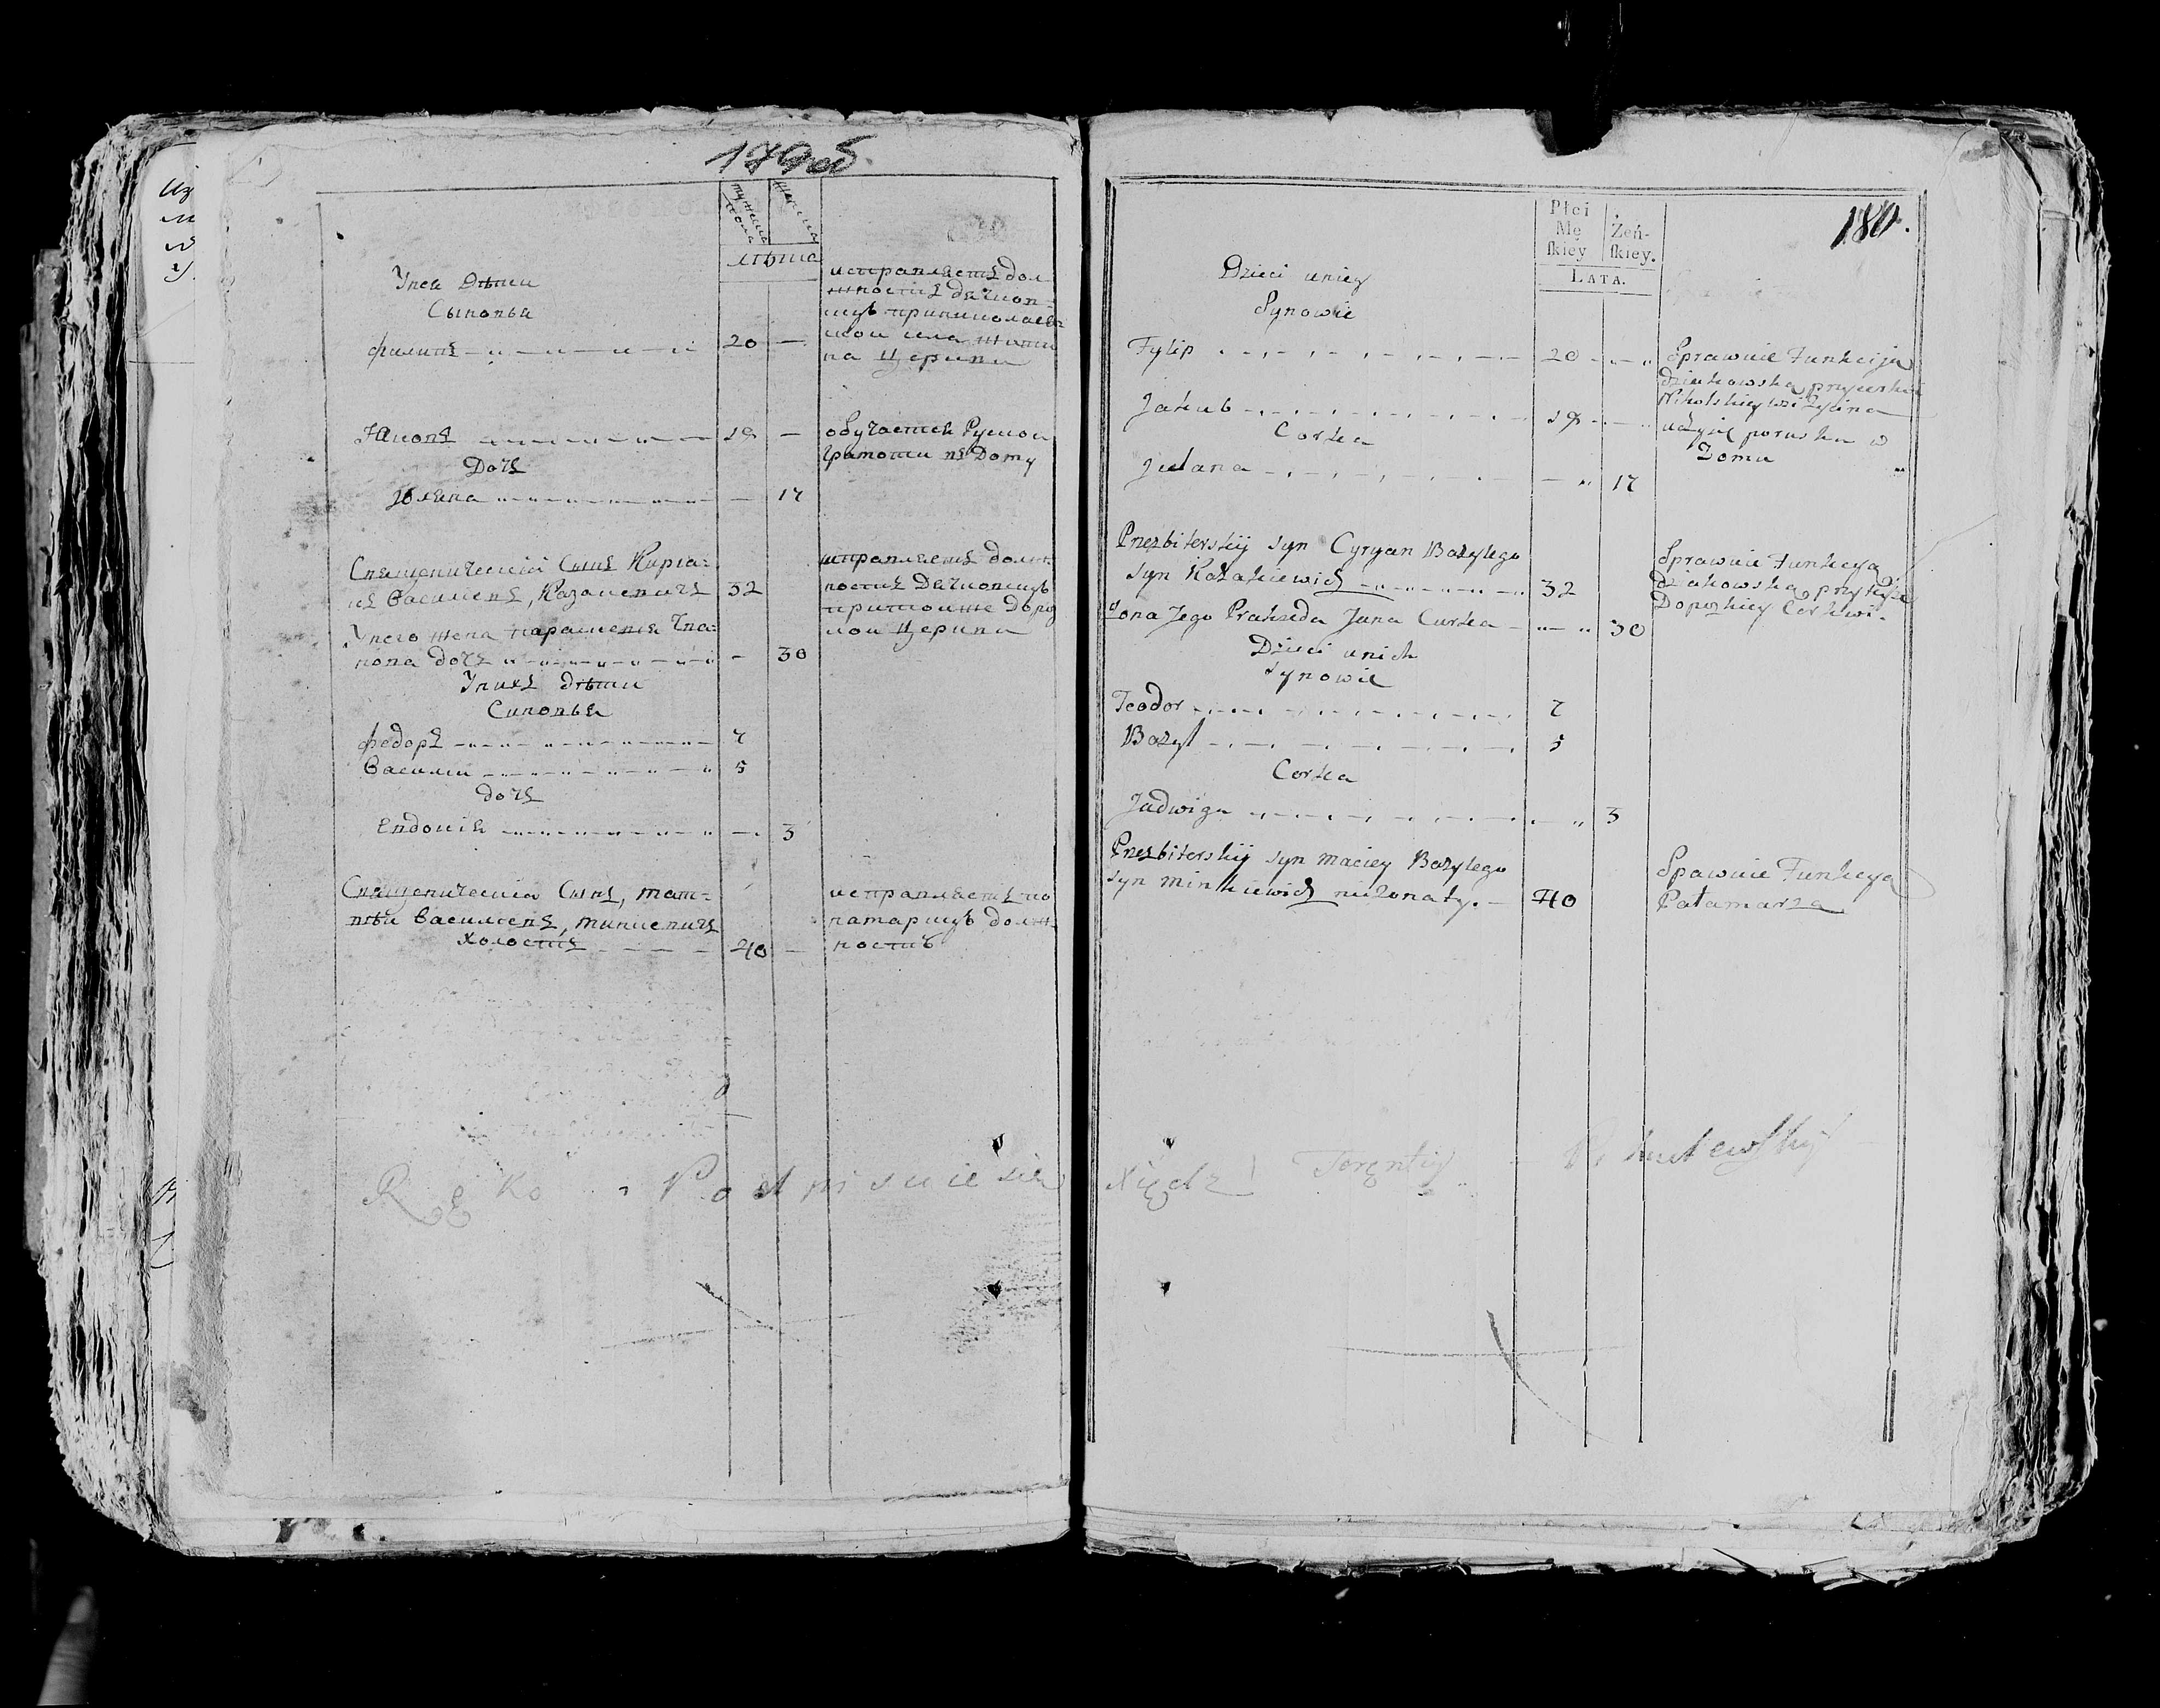 179об.
мужеска пола
женска
лѣта
Унея Дѣти
Сыновья
филипъ 20 —
исправляетъ дол
жность дячков-
скую при николаев
ской села жити
на Церкви
Яковъ 19 —
обучается Руской
Грамоти въ Дому
Дочь
Юлияна — 17
Священическій Сынъ Киріа-
къ Василіевъ, Казакевичъ 32
исправляетъ долж-
ность Дячковскую
притойже
ской Церкви
Унего жена параскевія Ива-
нова дочь — 30
Унихъ дѣти
Синовья
федоръ 7
Василій 5
дочь
Евдокія — 3
Священическій Сынъ, мат-
вѣй василіевъ, минкевичъ
холостъ 40 —
исправляетъ по
намарскую долж-
ность
Ręko Podpisuie się
180.
Płci
Mę
ſkiey
Żeń-
ſkiey.
LATA.
Dzieci uniey
Synowie
Fylip 20
Sprawuie Funkcija
dziakowska przycerkwi
Nikolskiey wsi Życina
Jakub 19
uczysię porusku w
Domu
Corka
Julana 17
Prezbiterskij syn Cyryan Bazylego
syn Kozakiewicz 32
Sprawuie Funkcya
dziakowska przy teyże
Cerkwi.
żona Jego Prakseda Jana Curka 30
Dzieci unich
Synowie
Teodor 7
Bazyl 5
Corka
Jadwiga 3
Prezbiterskij syn maciey Bazylego
syn minkiewicz nieżonaty. 40
Spawuie Funkcya
Patamarza
Xiędz Terentiy